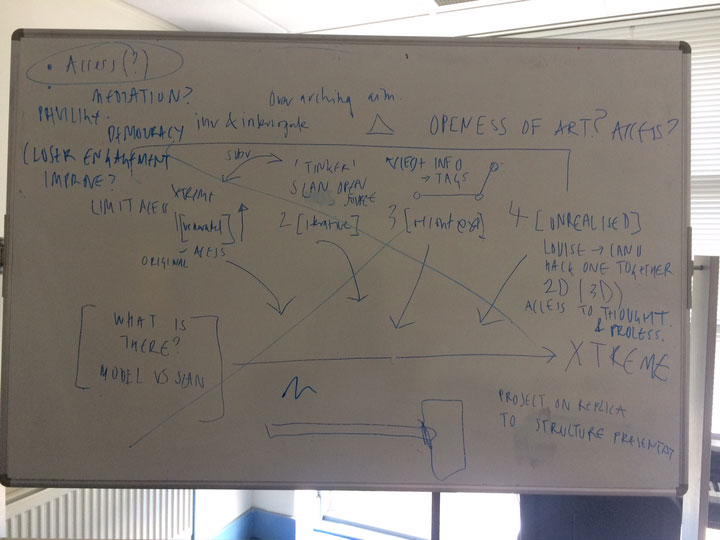 • Access(?)
• MEDIATION?
DEMOCRACY
CLOSER ENGAGEMENT
IMPROVE?
LIMIT ACESS
Over arching aim.
inv & interrogate
OPENESS OF ART? ACCESS?
XTREME
'TINKER'
SCAN OPEN
INFO
→ TAGS
1
2 [iterative]
3
4 [UNREALISED]
ACESS
ORIGINAL
LOUISE → CAN U
HACK ONE TOGETHER
2D (3D)
ACCESS TO THOUGHT
& PROCESS.
WHAT IS
THERE?
MODEL VS SCAN
XTREME
PROJECT ON REPLICA
TO STRUCTURE PRESENTAT